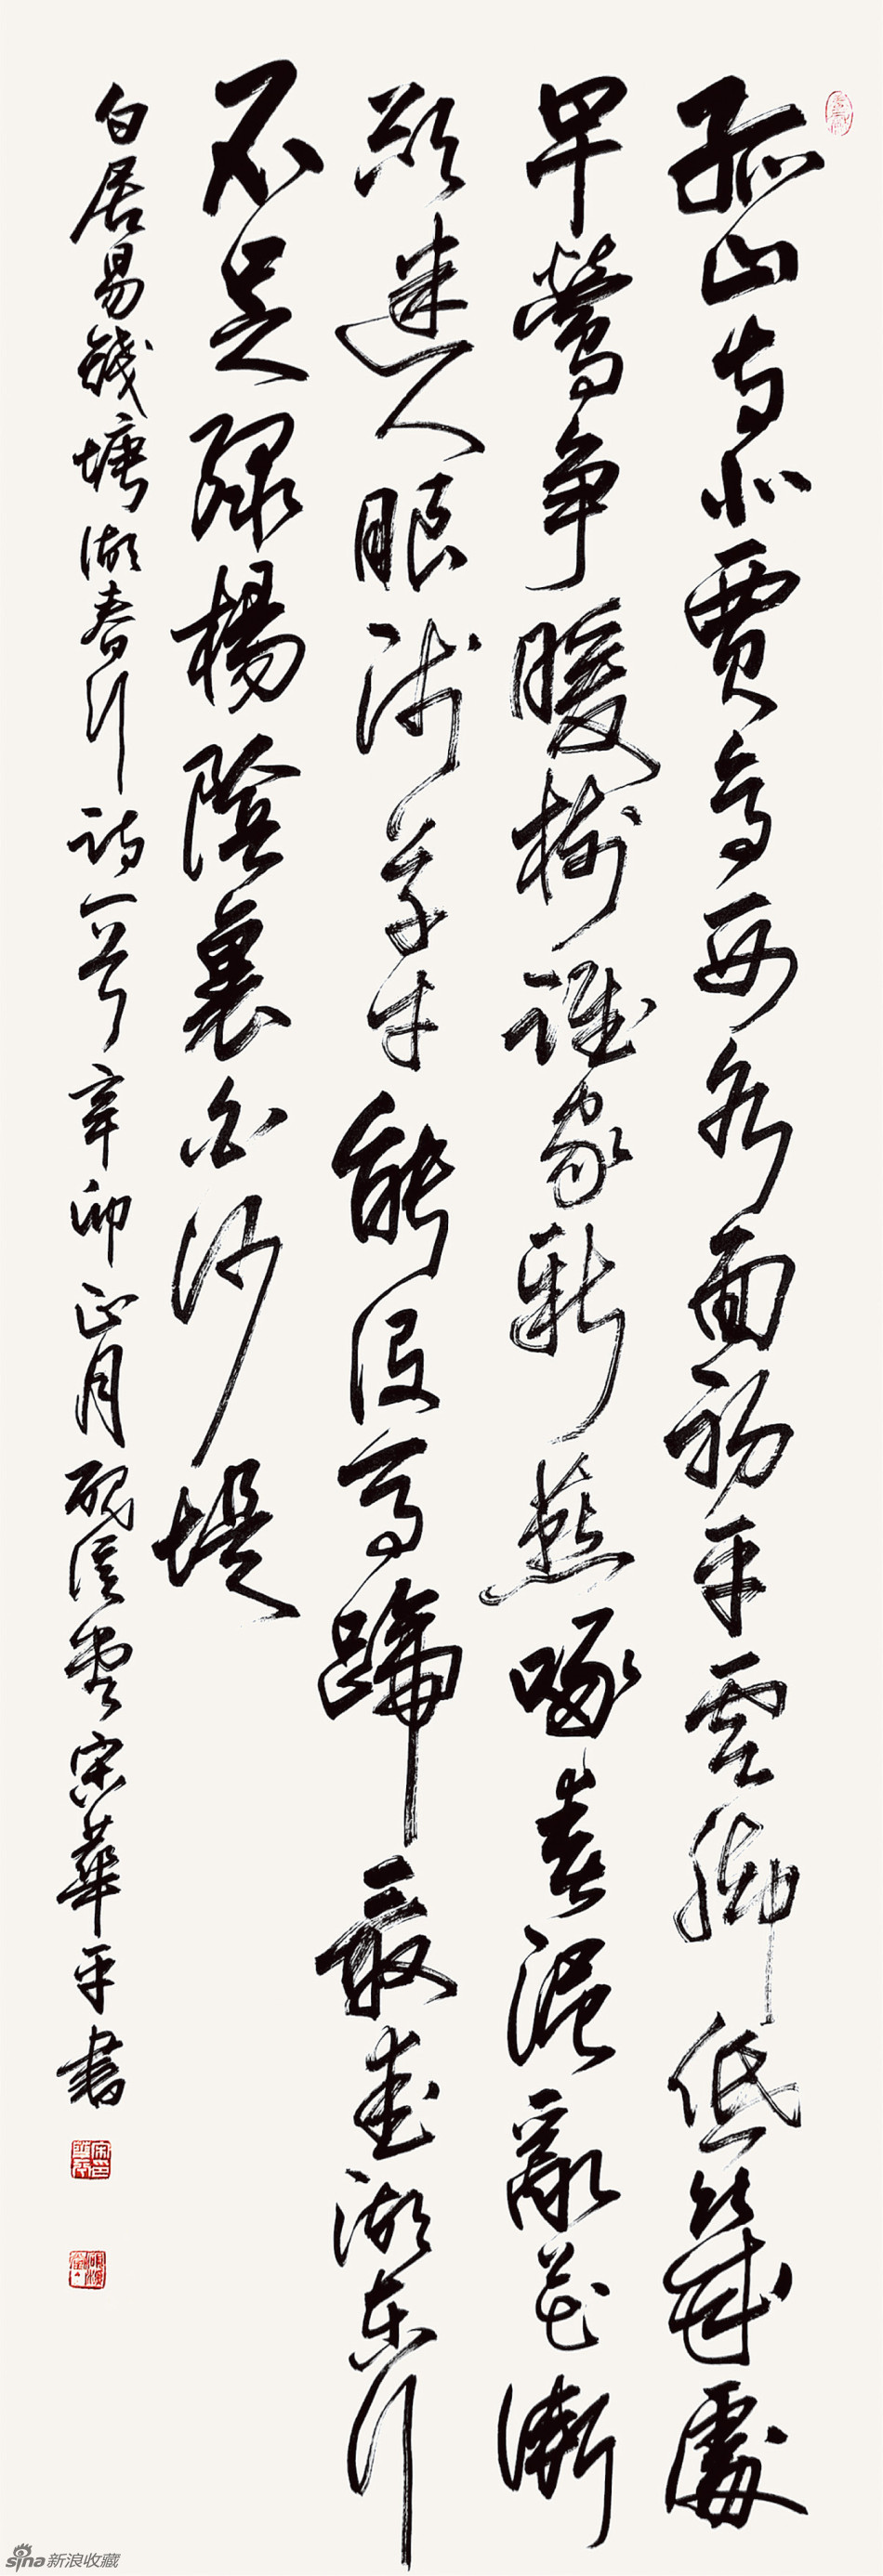 孤山寺北賈亭西水面初平雲脚低幾處
早鶯争暖樹誰家新燕啄春泥亂花漸
欲迷人眼淺草才能沒馬蹄最愛湖東行
不足綠楊陰裏白沙堤
白居易錢塘湖春行詩一首辛卯正月宋華平書
sina新浪收藏